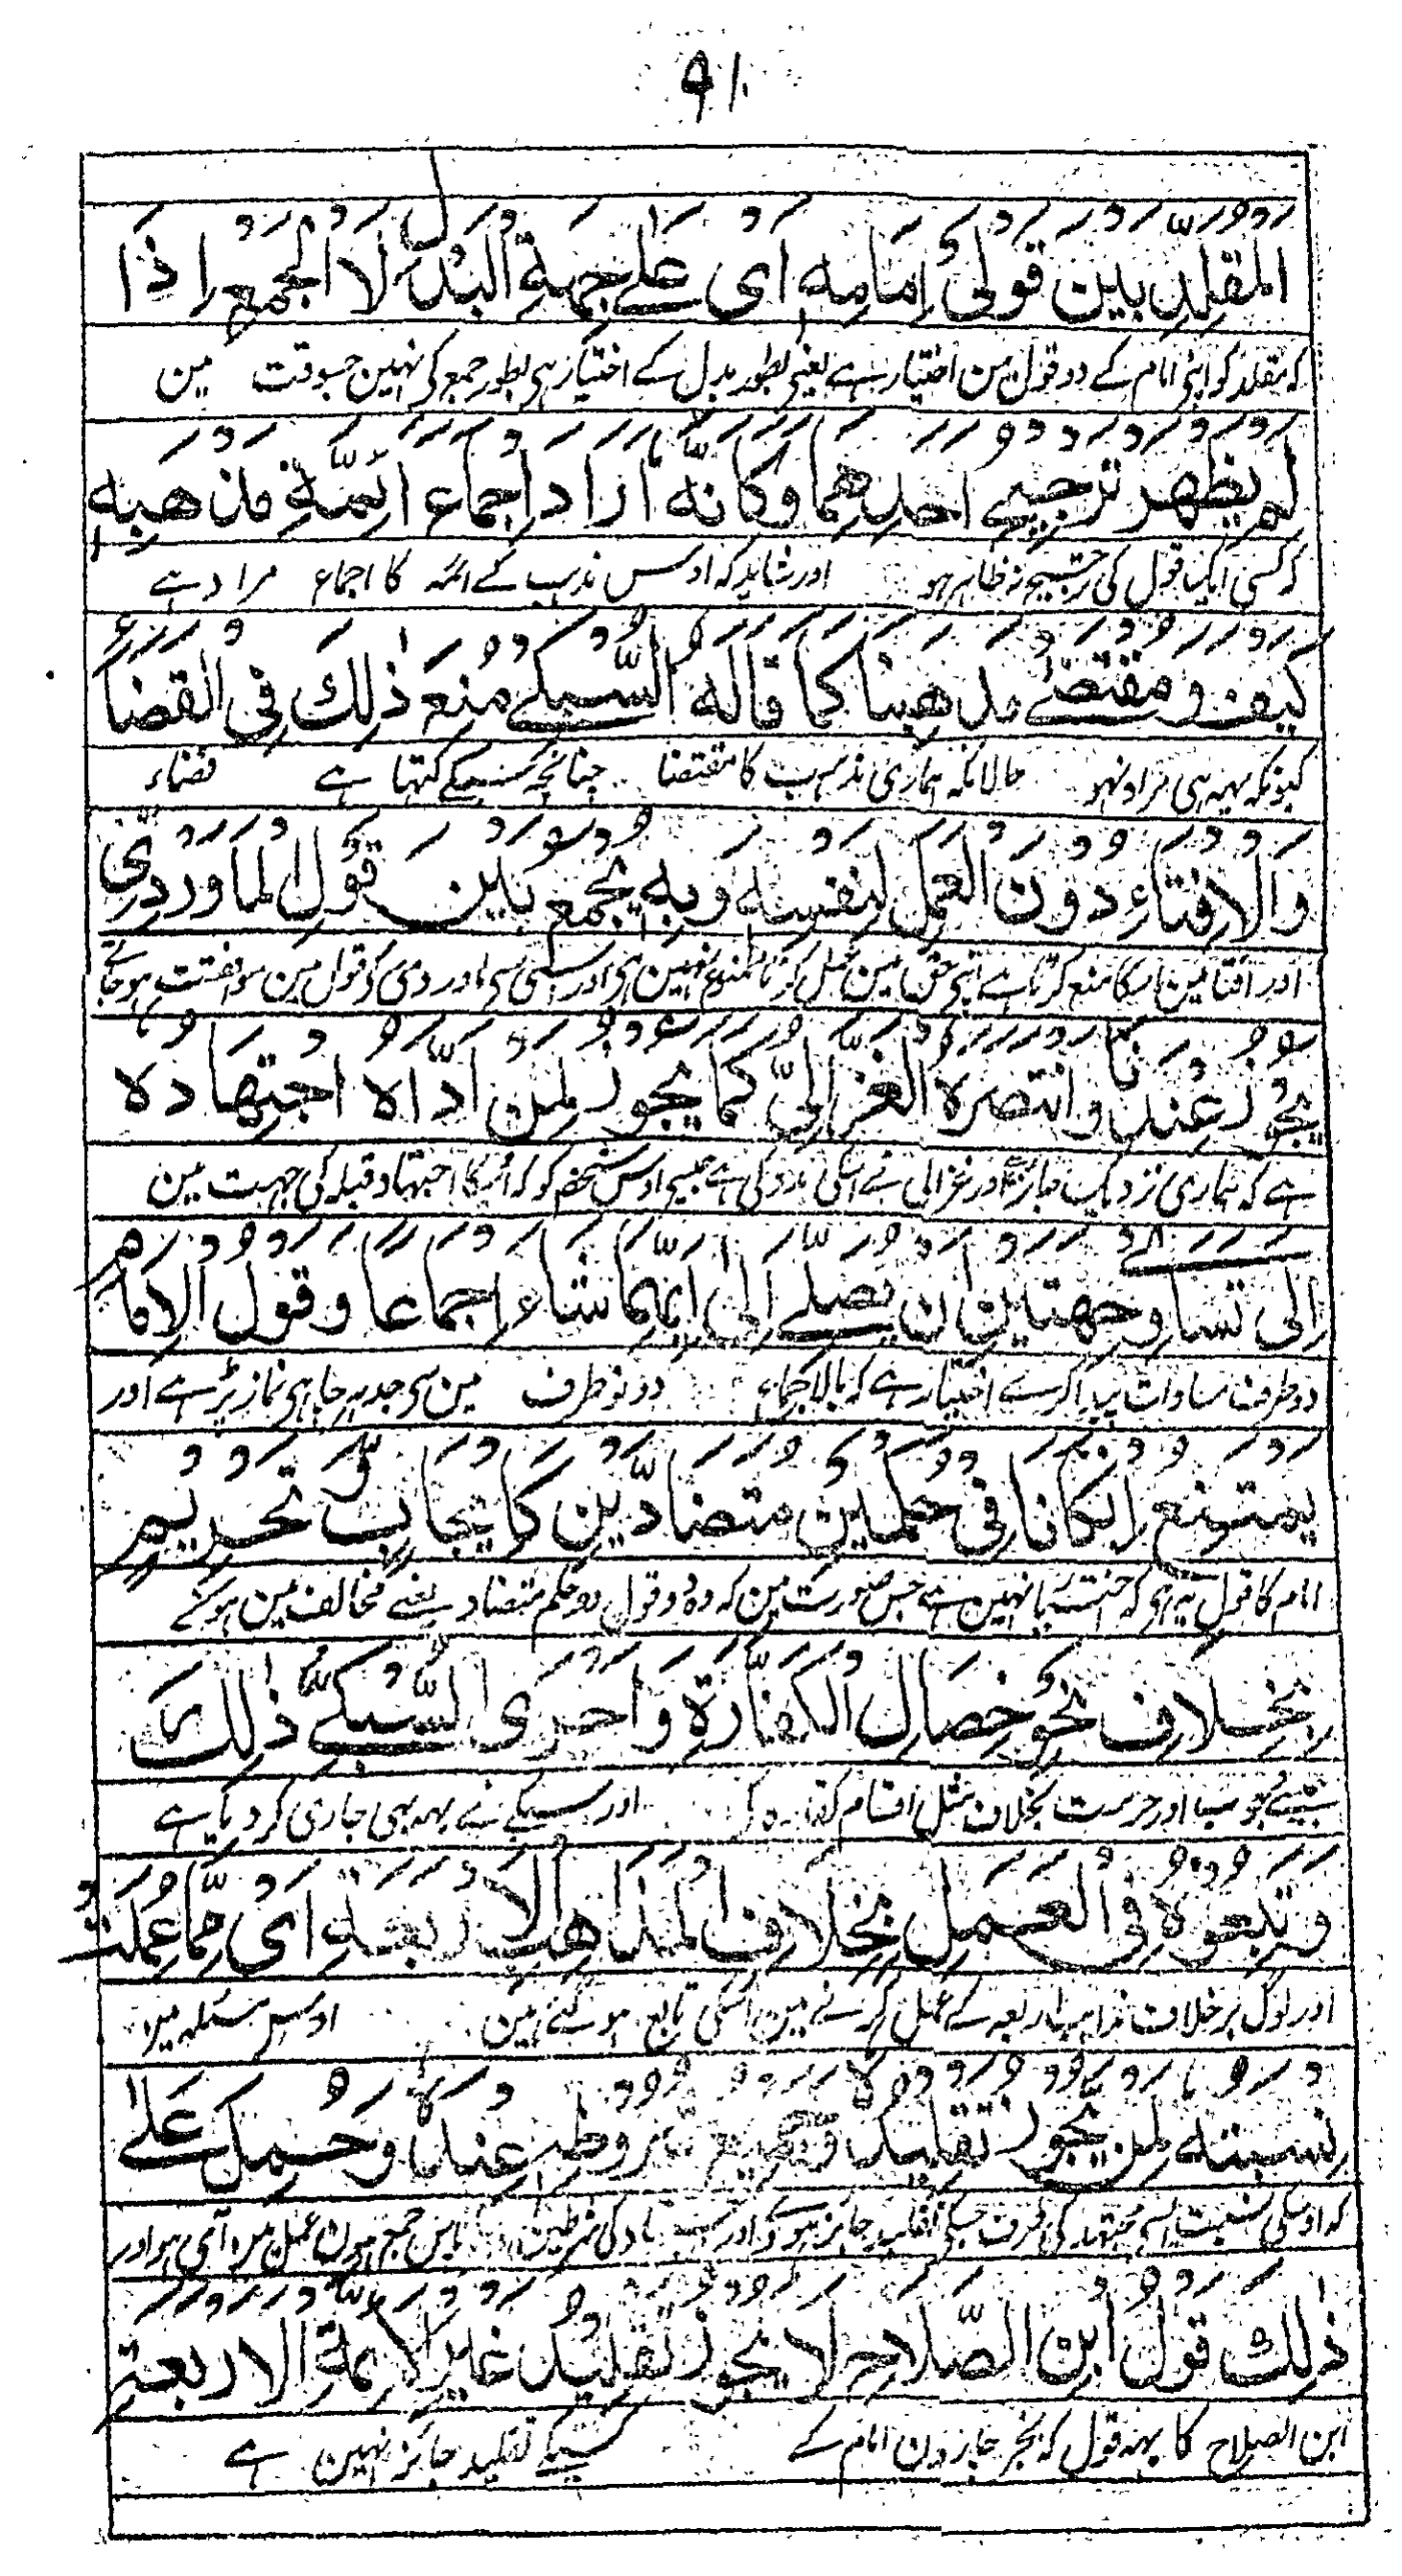 ۹۱
الْمُقَلِّدِ بَيْنَ قَوْلَيْ اِمَامِهِ اَيْ عَلٰے جِهَةِ الْبَدَلِ لَا الْجَمْعِ اِذَا
کہ مقلد کو اپنی امام کے دو قول مین اختیار ہے یعنی بطور بدل کے اختیار ہی بطور جمع کی نہین جسوقت مین
لَمْ يَظْهَرْ تَرْجِيْحُ اَحَدِهِمَا وَكَاَنَّهٗ اَرَادَ اِجْمَاعَ اَئِمَّةِ مَذْهَبِهِ
کہ کسی ایک قول کی ترجیح نہ ظاہر ہو اور شاید کہ اوس مذہب کے ائمہ کا اجماع مراد ہے
كَيْفَ وَمُقْتَضٰے مَذْهَبِنَا كَمَا قَالَهُ السُّبْكِےُّ مَنْعَ ذٰلِكَ فِي الْقَضَاءِ
کیونکہ یہہ ہی مراد نہو حالانکہ ہماری مذہب کا مقتضا چنانچہ سبکے کہتا ہے قضاء
وَالْاِفْتَاءِ دُوْنَ الْعَمَلِ لِنَفْسِهِ وَبِهِ يُجْمَعُ بَيْنَ قَوْلِ الْمَاوَرْدِيِّ
اور افتا مین اسکا منع کرنا ہے اپنی حق مین عمل کرنا منع نہین ہی اور اسی سی ماوردی کو قول مین موافقت ہو جاتے
يَجُوْزُ عِنْدَنَا وَانْتَصَرَهُ الْغَزَالِيُّ كَمَا يَجُوْزُ لِمَنْ اَدَّاهُ اِجْتِهَادُهٗ
ہے کہ ہماری نزدیک جائز ہے اور غزالی نے اسکی مدد کی ہے جیسے اوس شخص کو کہ اوسکا اجتہاد قبلہ کی جہت مین
اِلٰى تَسَاوِ جِهَتَيْنِ اَنْ يُصَلِّےَ اِلٰى اَيِّهِمَا شَاءَ اِجْمَاعًا وَقَوْلُ الْاِمَامِ
دو طرف مساوات پیدا کرے اختیار ہے کہ بالاجماع دونو طرف مین سی جدہر چاہی نماز پڑہے اور
يَمْتَنِعُ اِنْ كَانَا فِي حُكْمَيْنِ مُتَضَادَّيْنِ كَاِيْجَابٍ وَّتَحْرِيْمٍ
امام کا قول یہ ہی کہ نہین ہے جس صورت مین کہ وہ دو قول دو حکم متضاد یعنے مخالف مین ہوئے
بِخِلَافِ نَحْوِ خِصَالِ الْكَفَّارَةِ وَاَجْرَى السُّبْكِےُّ ذٰلِكَ
جیسے وجوب اور حرمت بخلاف مثل اقسام کفارہ کے اور سبکے نے یہہ ہی جاری کر دیا ہے
وَتَبِعُوْهُ فِي الْعَمَلِ بِخِلَافِ الْمَذَاهِبِ الْاَرْبَعَةِ اَيْ مِمَّا عُلِمَتْ
اور لوگ بر خلاف مذاہب اربعہ کے عمل کرنے مین اسکی تابع ہو گئے ہین اوس مسئلہ مین
نِسْبَتُهٗ لِمَنْ يَجُوْزُ تَقْلِيْدُهٗ وَجَمِيْعُ شُرُوْطِهِ عِنْدَهٗ وَحُمِلَ عَلٰے
کہ اوسکی نسبت ایسے مجتہد کی طرف جسکی تقلید جائز ہو اور سب جمع ہون عمل مین آئی ہو اور
ذٰلِكَ قَوْلُ ابْنِ الصَّلَاحِ لَا يَجُوْزُ تَقْلِيْدُ غَيْرِ الْاَئِمَّةِ الْاَرْبَعَةِ
ابن الصلاح کا یہہ قول کہ بجز چارون امام کے کسیکے تقلید جائز نہین ہے